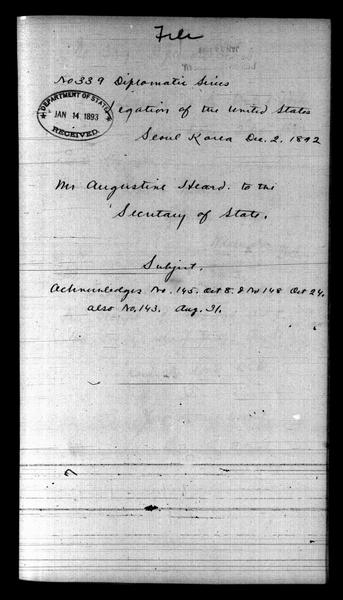 File
No 339 Diplomatic Series
DEPARTMENT OF STATE
JAN 14 1893
RECEIVED.
Legation of the United States
Seoul Korea Dec. 2, 1892
Mr Augustine Heard. to the
Secretary of State.
Subject.
Acknowledges No. 145. Oct 8. & No 148 Oct 24.
also No. 143. Aug. 31.